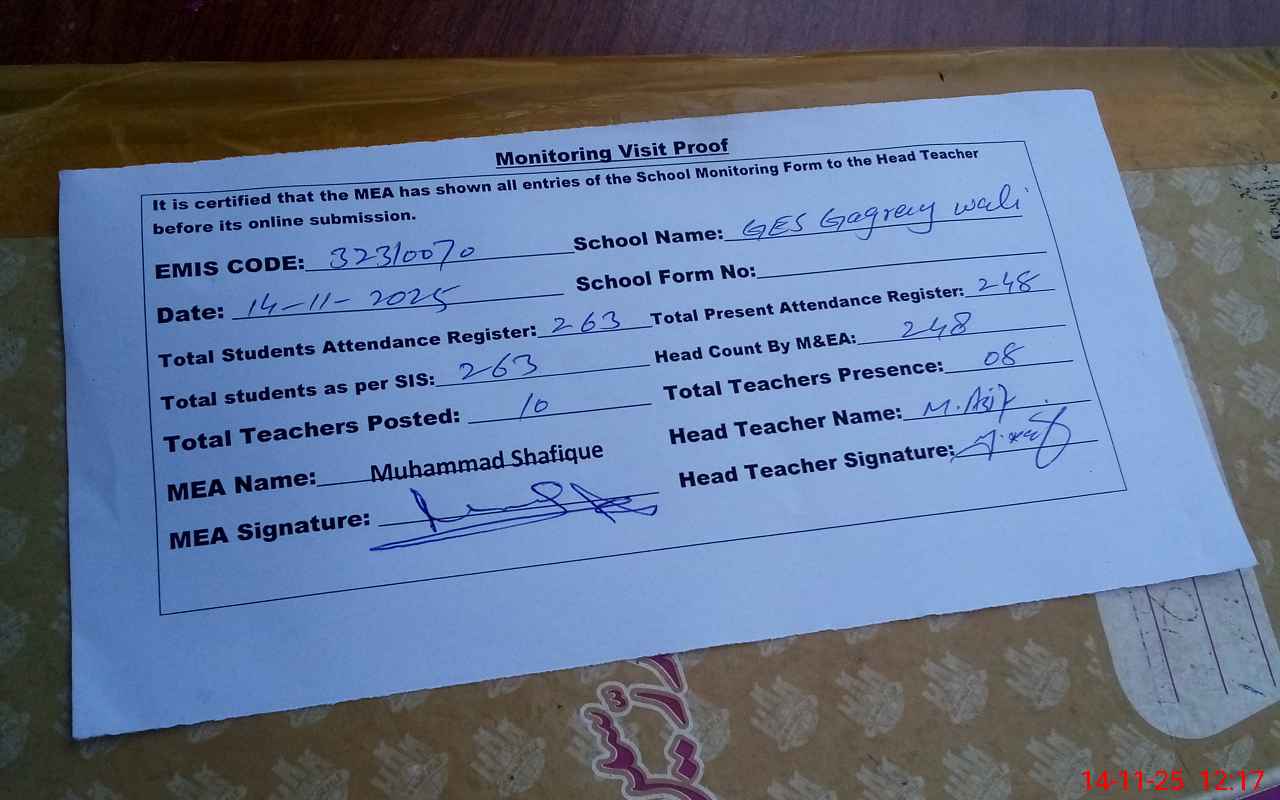 Monitoring Visit Proof
It is certified that the MEA has shown all entries of the School Monitoring Form to the Head Teacher
before its online submission.
EMIS CODE: 32310070 School Name: GES Gagrey wali
Date: 14-11-2025 School Form No:
Total Students Attendance Register: 263 Total Present Attendance Register: 248
Total students as per SIS: 263 Head Count By M&EA: 248
Total Teachers Posted: 10 Total Teachers Presence: 08
MEA Name: Muhammad Shafique Head Teacher Name: M. Asif
MEA Signature: Head Teacher Signature:
14-11-25 12:17